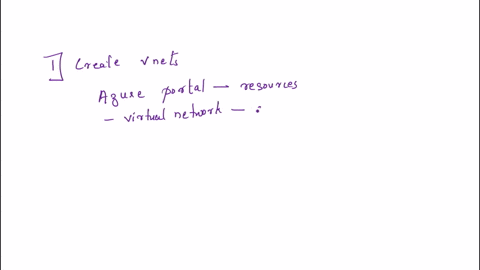 1] Create vnets
Azure portal — resources
— virtual network — .